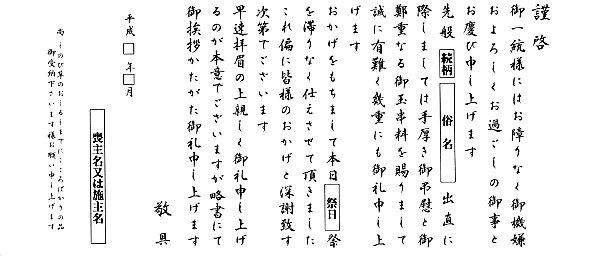 謹啓
御一統様にはお障りなく御機嫌
およろしくお過ごしの御事と
お慶び申し上げます
先般 続柄 俗名 出直に
際しましては手厚き御弔慰と御
鄭重なる御玉串料を賜りまして
誠に有難く幾重にも御礼申し上
げます
おかげをもちまして本日 祭日 祭
を滞りなく仕えさせて頂きました
これ偏に皆様のおかげと深謝致す
次第でございます
早速拝眉の上親しく御礼申し上げ
るのが本意でございますが略書にて
御挨拶かたがた御礼申し上げます
敬具
平成□年□月
喪主名又は施主名
尚しのび草のおしるしまでにこころばかりの品
御受納下さいます様お願い申し上げます